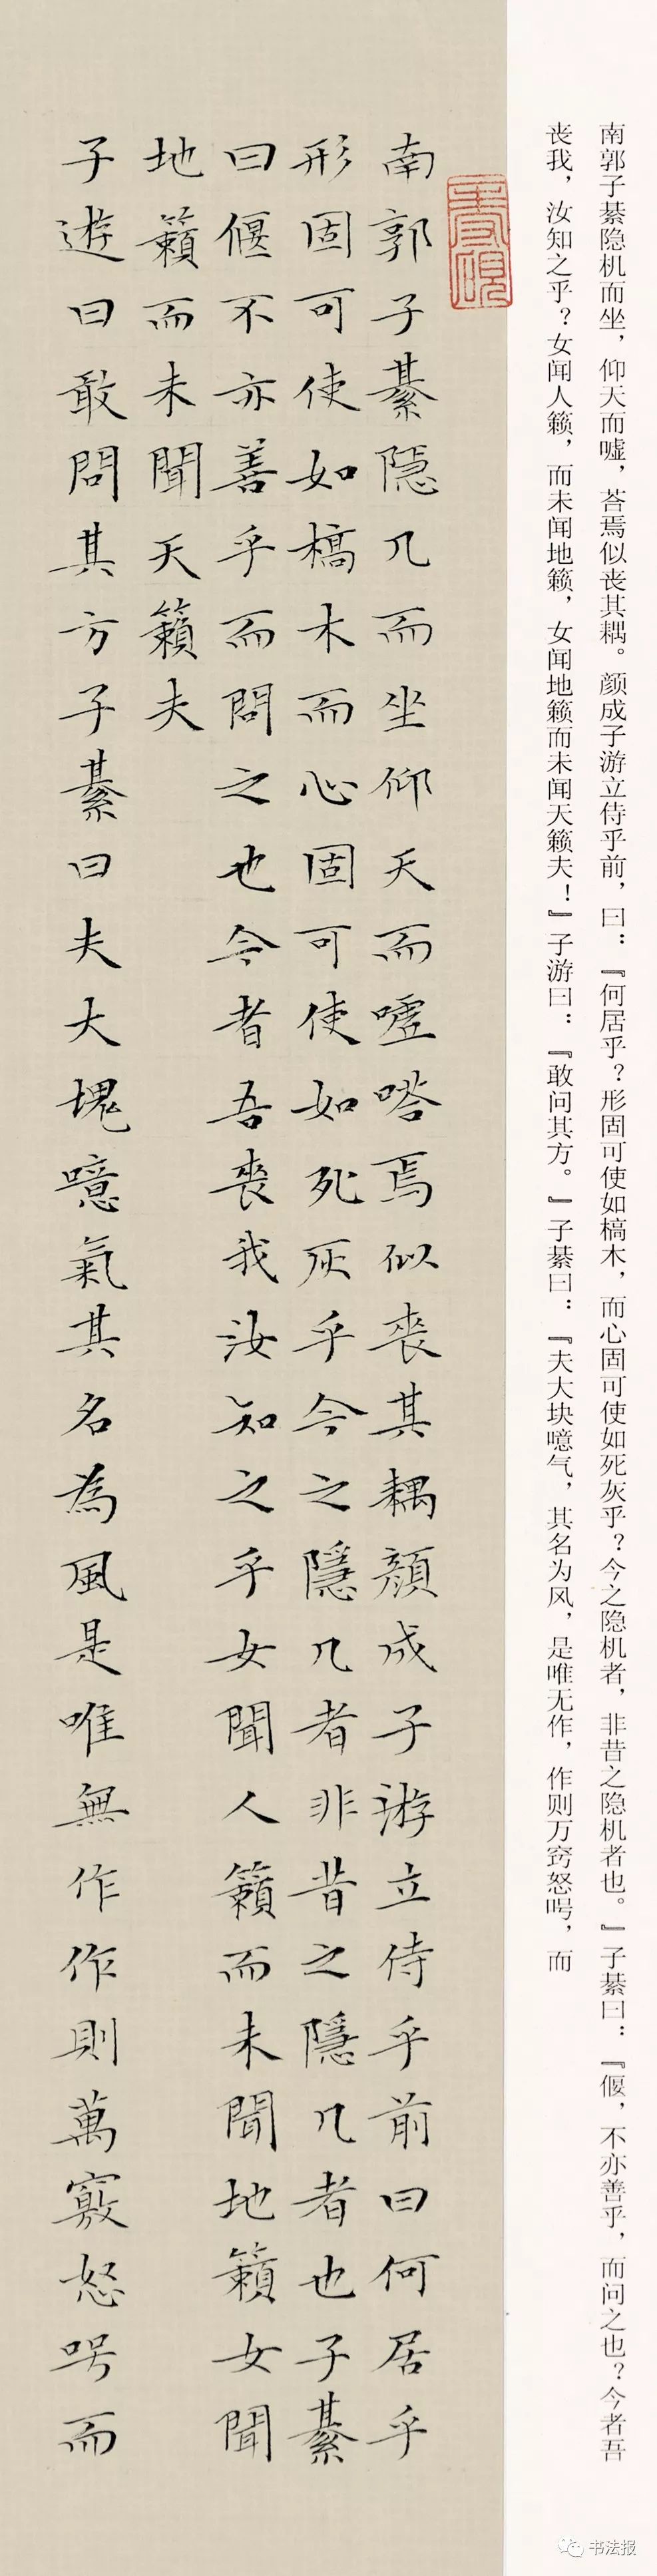 南郭子綦隐机而坐，仰天而嘘，荅焉似丧其耦。颜成子游立侍乎前，曰：『何居乎？形固可使如槁木，而心固可使如死灰乎？今之隐机者，非昔之隐机者也。』子綦曰：『偃，不亦善乎，而问之也？今者吾
丧我，汝知之乎？女闻人籁，而未闻地籁，女闻地籁而未闻天籁夫！』子游曰：『敢问其方。』子綦曰：『夫大块噫气，其名为风，是唯无作，作则万窍怒呺，而
南郭子綦隱几而坐仰天而嘘嗒焉似喪其耦顏成子游立侍乎前曰何居乎
形固可使如槁木而心固可使如死灰乎今之隱几者非昔之隱几者也子綦
曰偃不亦善乎而問之也今者吾喪我汝知之乎女聞人籟而未聞地籟女聞
地籟而未聞天籟夫
子遊曰敢問其方子綦曰夫大塊噫氣其名為風是唯無作作則萬竅怒呺而
书法报